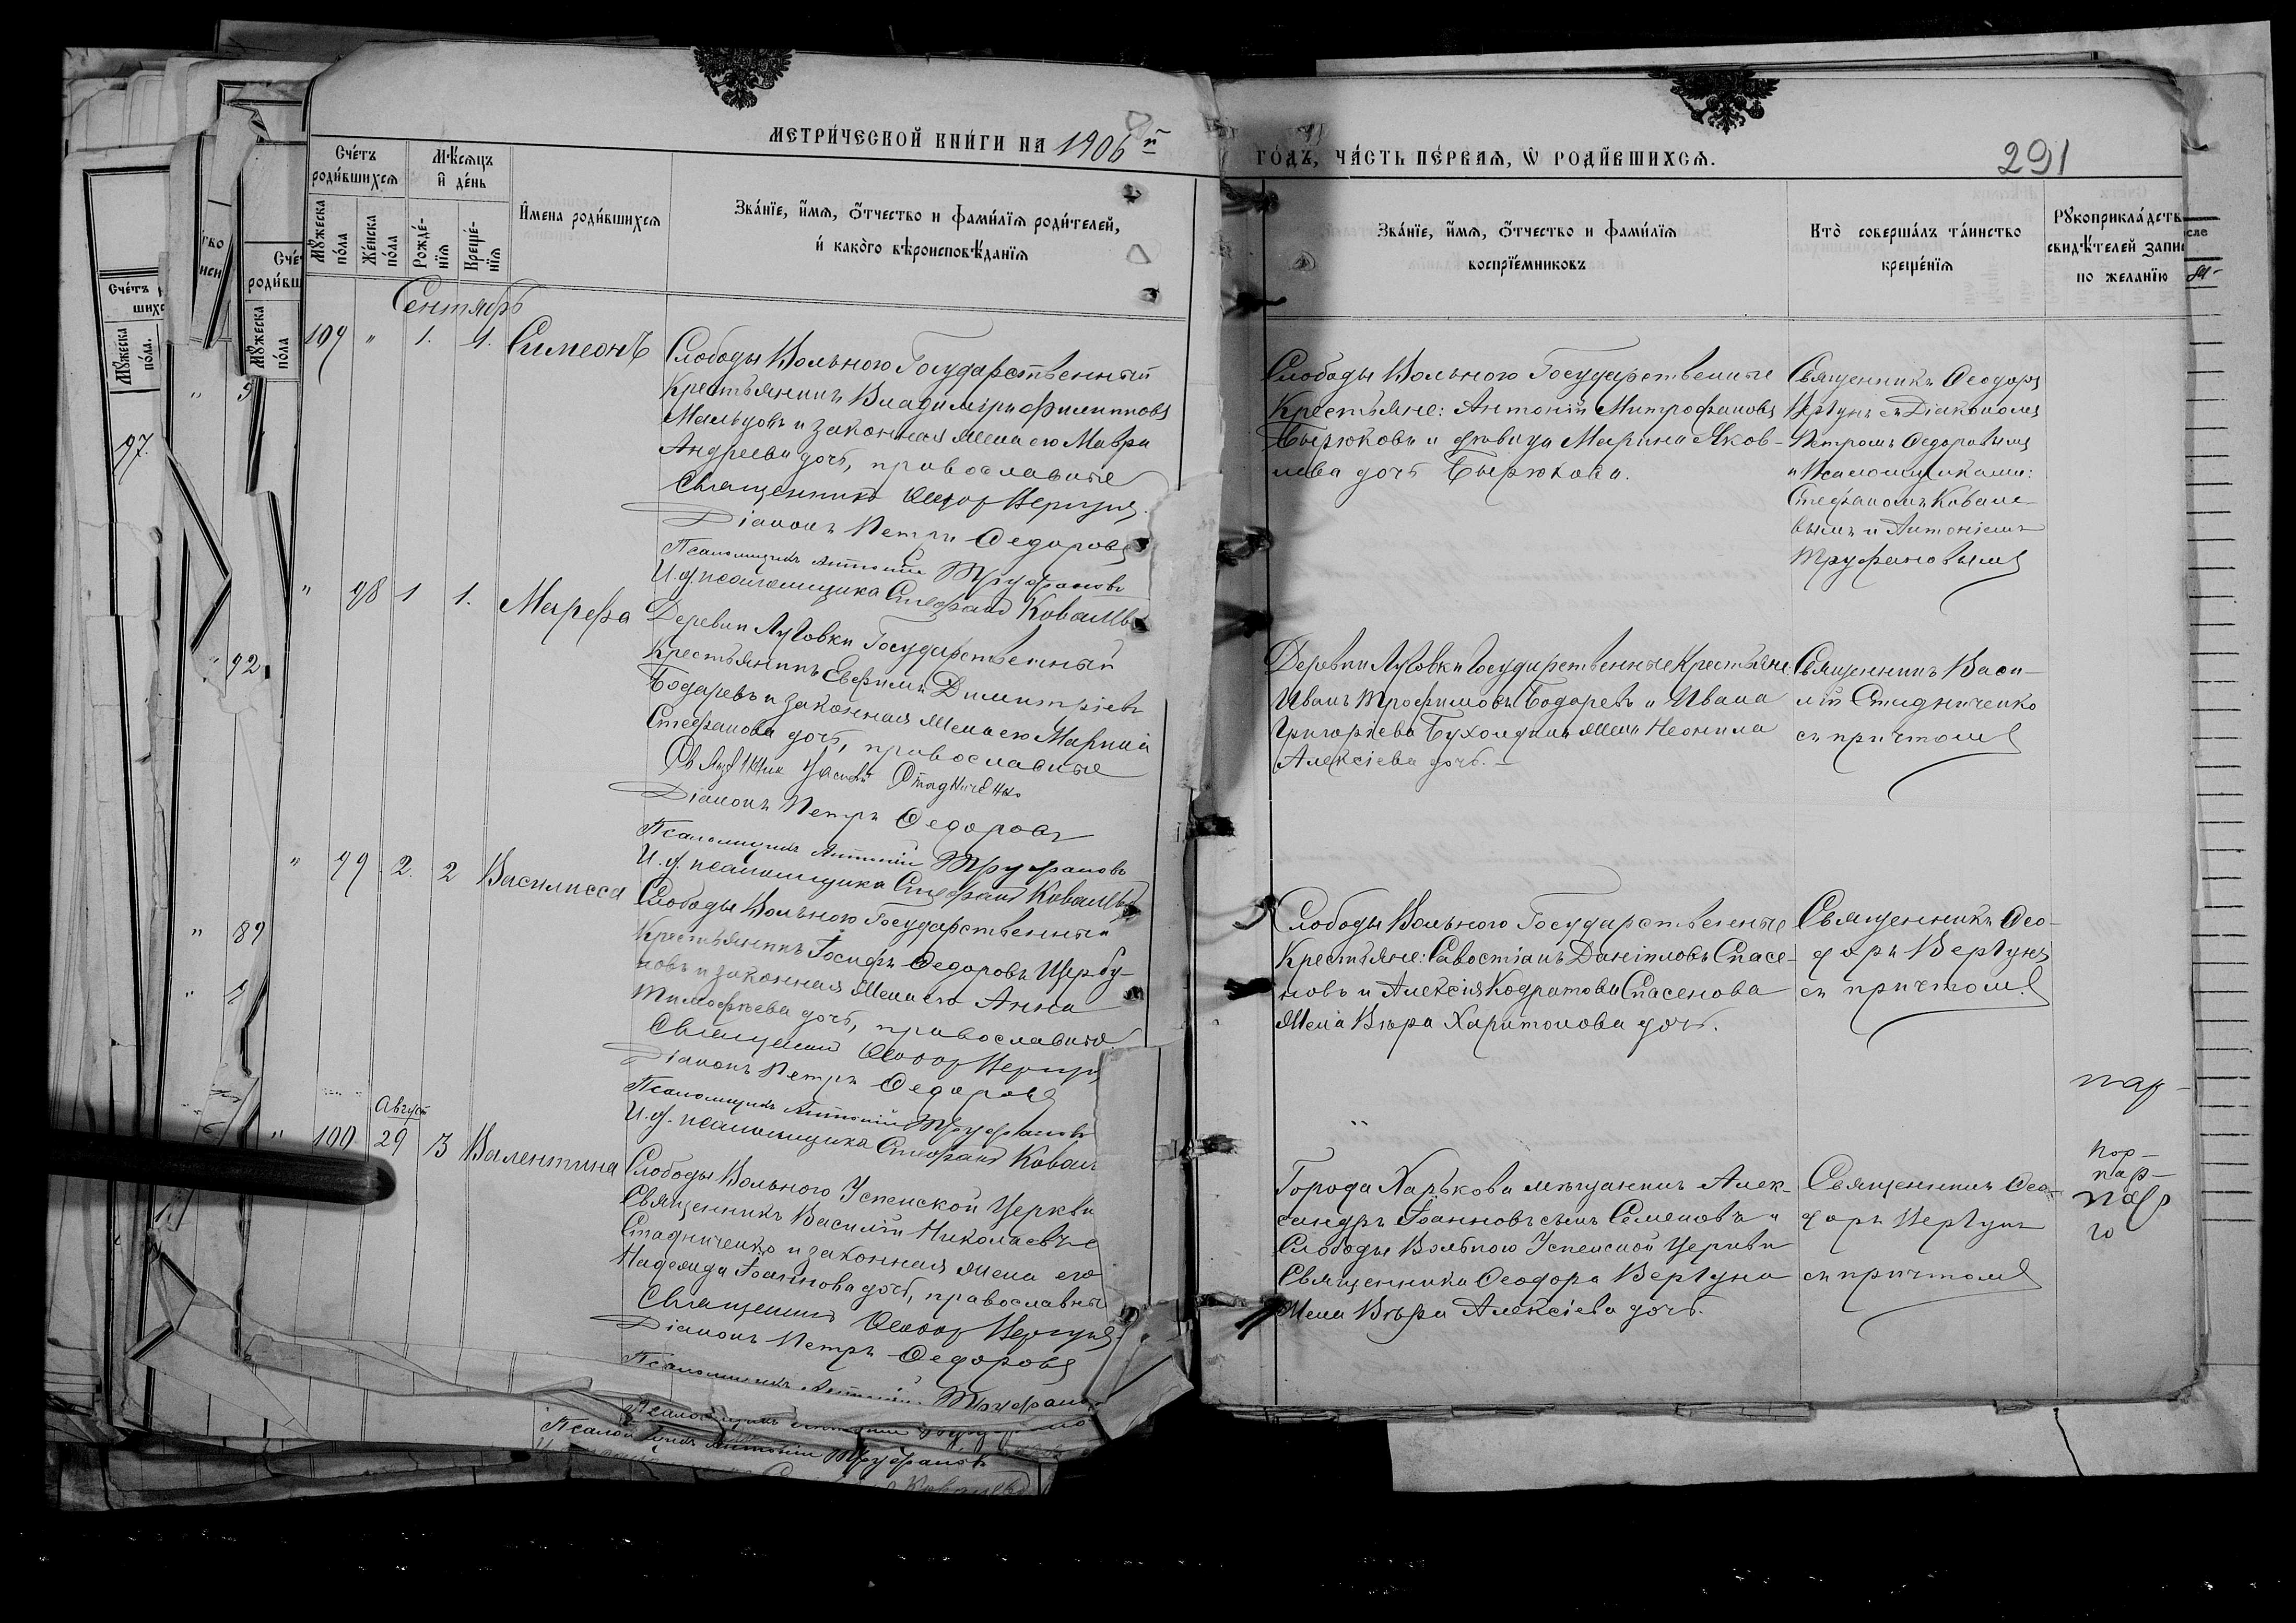 МЕТРИ́ЧЕСКОЙ КНИ́ГИ НА 1906й
ГО́ДЪ, ЧА́СТЬ ПЕ́РВАЯ, Ѡ РОДИ́ВШИХСЯ.
291
Сче́тъ роди́вшихся
Мѣ́сяцъ и҆ де́нь
И҆мена роди́вшихся
Зва́нїе, и҆́мя, ѻ҆́тчество и фами́лїя роди́телей,
и҆ како́го вѣроисповѣ́данїя
Зва́нїе, и҆́мя, ѻ҆́тчество и фами́лїя
воспрїе́мниковъ
Кто̀ соверша́лъ та́инство
креще́нїя
Рꙋкоприкла́дств
свидѣ́телей запи
по жела́нїю
Мꙋ́жеска по́ла
Же́нска по́ла
Рожде́нїя
Креще́нїя
Сентябрь
109 " 1. 4. Симеонъ
Слободы Вольного Государственный
Крестьянинъ Владиміръ Филипповъ
Мальцовъ и законная жена его Мавра
Андреева дочь, православные
Священникъ Ѳеодоръ Вергунъ
Діаконъ Петръ Ѳедоровъ
Псаломщикъ Антоній Труфановъ
И.д. псаломщика Стефанъ Ковалевъ
Слободы Вольного Государственные
Крестьяне: Антоній Митрофановъ
Бырюковъ и девица Марина Яков-
лева дочь Бырюкова.
Священникъ Ѳеодоръ
Вергунъ съ Діакономъ
Петромъ Ѳедоровымъ
и Псаломщиками:
Стефаномъ Ковале-
вымъ и Антоніемъ
Труфановымъ
" 98 1 1. Марѳа
Деревни Луговки Государственный
Крестьянинъ Евфимъ Димитріевъ
Бодаревъ и законная жена его Марина
Стефанова дочь, православные
Священник Василий Стадниченко
Діаконъ Петръ Ѳедоровъ
Псаломщикъ Антоній Труфановъ
И.д. псаломщика Стефанъ Ковалевъ
Деревни Луговки Государственные Крестьяне
Иванъ Трофимовъ Бодаревъ и Ивана
Григоріева Бухолдина жена Неонила
Алексіева дочь.
Священникъ Васи-
лій Стадниченко
съ причтомъ
" 99 2. 2 Василисса
Слободы Вольного Государственный
Крестьянинъ Іосифъ Ѳедоровъ Щербу-
новъ и законная жена его Анна
Тимофеева дочь, православные
Священникъ Ѳеодоръ Вергунъ
Діаконъ Петръ Ѳедоровъ
Псаломщикъ Антоній Труфановъ
И.д. псаломщика Стефанъ Ковал
Слободы Вольного Государственные
Крестьяне: Савостіанъ Даніиловъ Спасе-
новъ и Алексія Кодратова Спасенова
жена Вѣра Харитонова дочь.
Священникъ Ѳео-
доръ Вергунъ
съ причтомъ
Август
" 100 29 3 Валентина
Слободы Вольного Успенской Церкви
Священникъ Василій Николаевъ
Стадниченко и законная жена его
Надежда Іоаннова дочь, православны
Священникъ Ѳеодоръ Вергунъ
Діаконъ Петръ Ѳедоровъ
Псаломщикъ Антоній Труфано
Города Харькова мѣщанинъ Алек-
сандръ Іоанновъ сынъ Семеновъ и
Слободы Вольного Успенской Церкви
Священника Ѳеодора Вергуна
жена Вѣра Алексіева дочь.
Священникъ Ѳео-
доръ Вергунъ
съ причтомъ
Псаломщикъ Антоній Труфановъ
97.
92
89